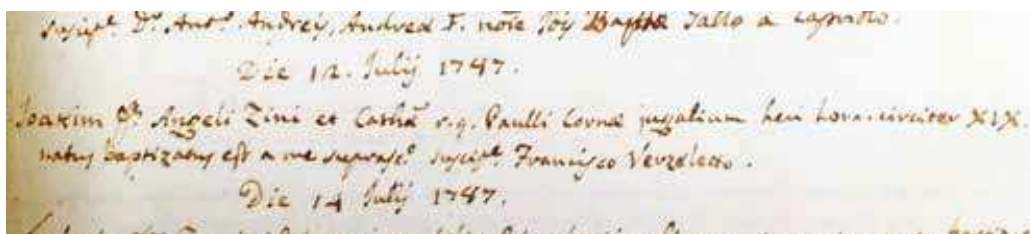 suscipt. D. Ant.o Andrey, Andreæ F. noie Joẏ Baptæ Tallo a
Die 12. Julij 1787.
Joaxim f.s Angeli Zini et Cathæ q. Paulli Cornæ jugalium heri hora circiter XIX.
natus baptizatus est a me suprasc.o suscipt.e Francisco Verzeletto.
Die 14 Julij 1787.